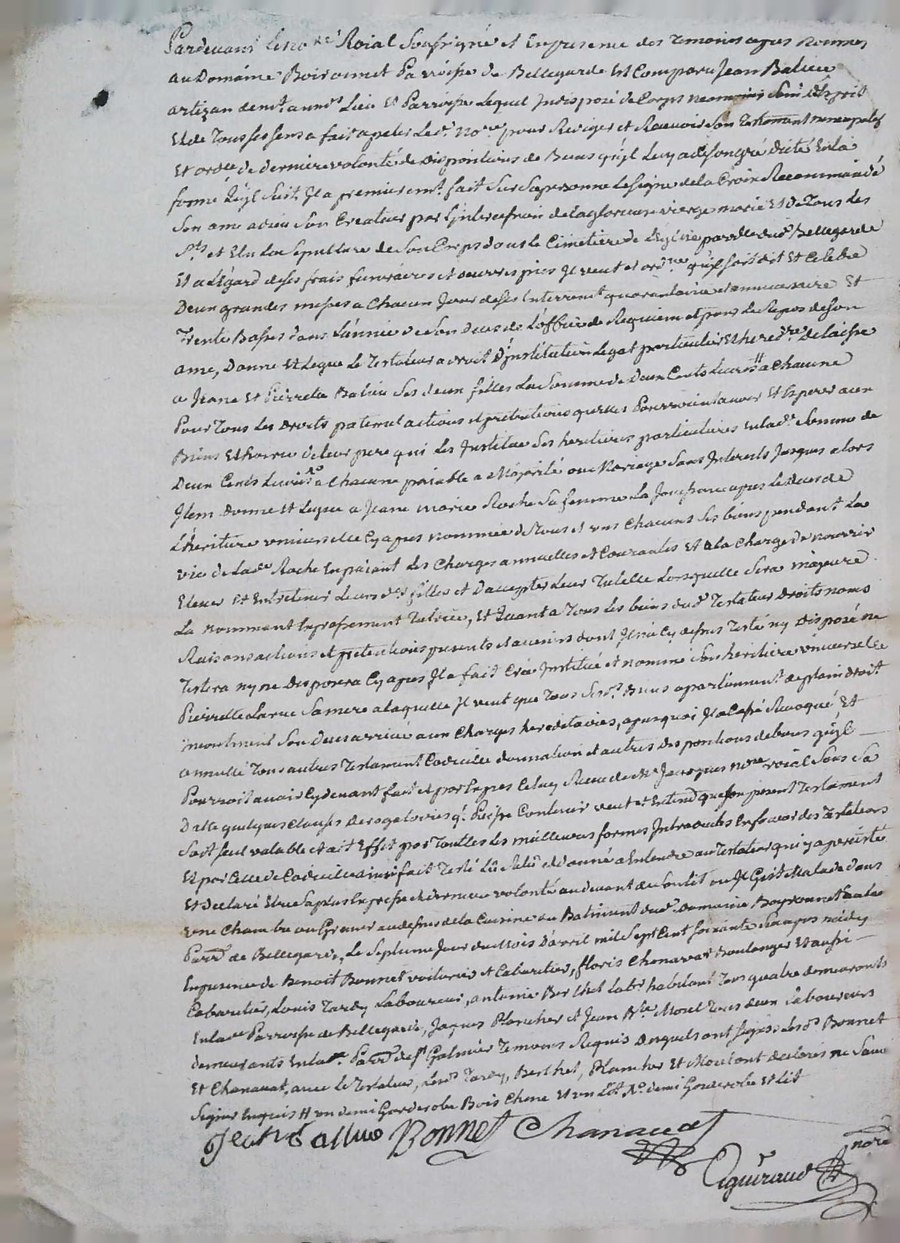 Pardevant le no.re Roial Soussigné et En presence des Temoins apres nommés
au Domaine Boironnet Parroisse de Bellegarde Est Comparu Jean Balüe
artizan demt. aud. Lieu et Parroisse Lequel Indisposé de Corps neamoins Sain d'Esprit
Et de Tous ses sens a fait apeler Led. No.re pour Rediger et Recevoir Son Testament noncupatif
Et ord.ce de derniere volonté de Dispositions de Biens qu'jl Luy a de son gré dicté En la
forme qu'jl Suit, Jl a premierem.t fait Sur Sa personne Le Signe de la Croix Recommandé
Son ame a dieu Son Createur par L'intercession de la glorieuse vierge marie Et de Tous Les
S.ts et Elu La Sepulture de Son Corps dans le Cimetiere de L'Eglise parr.lle dud. Bellegarde
Et a L'égard de ses frais funeraires et oeuvres pies Jl veut et ord.ne qu'jl soit dit Et Celebré
Deux grandes messes a Chacun Jour de Ses Enterrem.t quarantaine et anniversaire Et
Trente Basses dans L'année de Son Deces de L'office de Requiem et pour Le Repos de son
ame, Donne Et Legue Le Testateur a droit D'jnstitution Legat particulier et hered.re Delaisse
a Jeane Et Pierrette Balüe Ses deux filles La Somme de Deux Cents Livres # a Chacune
Pour Tous Les Droits paternel actions et pretentions quelles Pourroint avoir Et Esperer aux
Biens Et hoirie de Leur pere qui Les Jnstitue Ses heritieres particulieres En lad. Somme de
Deux Cents Livres a Chacune païable a Majorité ou Mariage Sans Interests Jusques alors
Jtem Donne Et Legue a Jeane marie Roche Sa femme La Jouissance apres Le Deces de
L'heritiere universelle Cy apres nommée de Tous et uns Chacuns Ses biens pendant La
vie de Lad. Roche En païant Les Charges annuelles et Courantes Et a La Charge de nourrir
Elever Et Entretenir Leurs d. filles et D'accepter Leur Tutelle Lorsquelle Sera majeure
La nommant Expressement Tutrice, Et Quant a Tous Les biens dud. Testateur Droits noms
Raisons actions et pretentions presents et avenirs dont Jl n'a Cy dessus Testé ny Disposé ne
Testera ny ne Disposera Cy apres Jl a fait Créé Jnstitué et nommé Son heritiere universelle
Pierrette Larue Sa mere a laquelle Jl veut que Tous Sesd. Biens apartienn.t de plain droit
jncontinent Son Deces arrivé aux Charges hereditaires, apar quoi Jl a Cassé Revoqué Et
annullé Tous autres Testament Codicille donnation et autres Dispositions de biens qu'jl
Pourroit avoir Cy devant fait et par Expres Celuy Receu de M.e Jacques no.re roial Sous Sa
Datte quelques Clauses Derogatoires qu'jl Puisse Contenir veut et Entend que Son present Testament
Soit Seul valable et ait Effet par Touttes les meilleures formes Introduites En faveur des Testateurs
Et par Celle de Codicille ainsi fait Testé Lû Relû et donné a Entendre au Testateur qui y a persisté
Et Declaré Etre Sa plus Expresse et derniere volonté au devant de Son lit ou Jl Gist Malade dans
une Chambre ou Grenier au dessus de la Cuisine au Batiment dud. Domaine Boyronnet Susd.
Parr.e de Bellegarde, Le Septieme Jour du Mois D'avril mil Sept Cent Soixante Seize apres midy
En presence de Benoit Bonnet voiturier et Cabartier, floris Chanavat Boulanger Et aussi
Cabartier, Louis Tardy Laboureur, antoine Berthel Labr. habitant Tous quatre demeurants
En lad. Parroisse de Bellegarde, Jaques Plancher et Jean B.te Morel Tous deux Laboureurs
demeurants En la Parr.e de S.t Galmier Temoins Requis Desquels ont Signé Lesd. Bonnet
Et Chanavat, avec le Testateur, Lesd. Tardy, Berthel, Plancher Et Morel ont declaré ne Savoir
Signer Enquis # un demi Garderobe Bois Chene Et un Lot. X.e demi Garderobe et Lit
Jean Ballue Bonnet Chanavat
Eiguiraud no.re